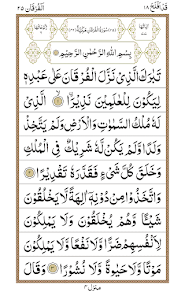 قد افلح ١٨
الفرقان ٢٥
بِسْمِ اللّٰهِ الرَّحْمٰنِ الرَّحِيْمِ
تَبٰرَكَ الَّذِىْ نَزَّلَ الْفُرْقَانَ عَلٰى عَبْدِهٖ
لِيَكُوْنَ لِلْعٰلَمِيْنَ نَذِيْرًا الَّذِىْ
لَهٗ مُلْكُ السَّمٰوٰتِ وَالْاَرْضِ وَلَمْ يَتَّخِذْ
وَلَدًا وَّلَمْ يَكُنْ لَّهٗ شَرِيْكٌ فِى الْمُلْكِ
وَخَلَقَ كُلَّ شَىْءٍ فَقَدَّرَهٗ تَقْدِيْرًا
وَاتَّخَذُوْا مِنْ دُوْنِهٖۤ اٰلِهَةً لَّا يَخْلُقُوْنَ
شَيْـًٔا وَّهُمْ يُخْلَقُوْنَ وَلَا يَمْلِكُوْنَ
لِاَنْفُسِهِمْ ضَرًّا وَّلَا نَفْعًا وَّلَا يَمْلِكُوْنَ
مَوْتًا وَّلَا حَيٰوةً وَّلَا نُشُوْرًا وَقَالَ
منزل ٤